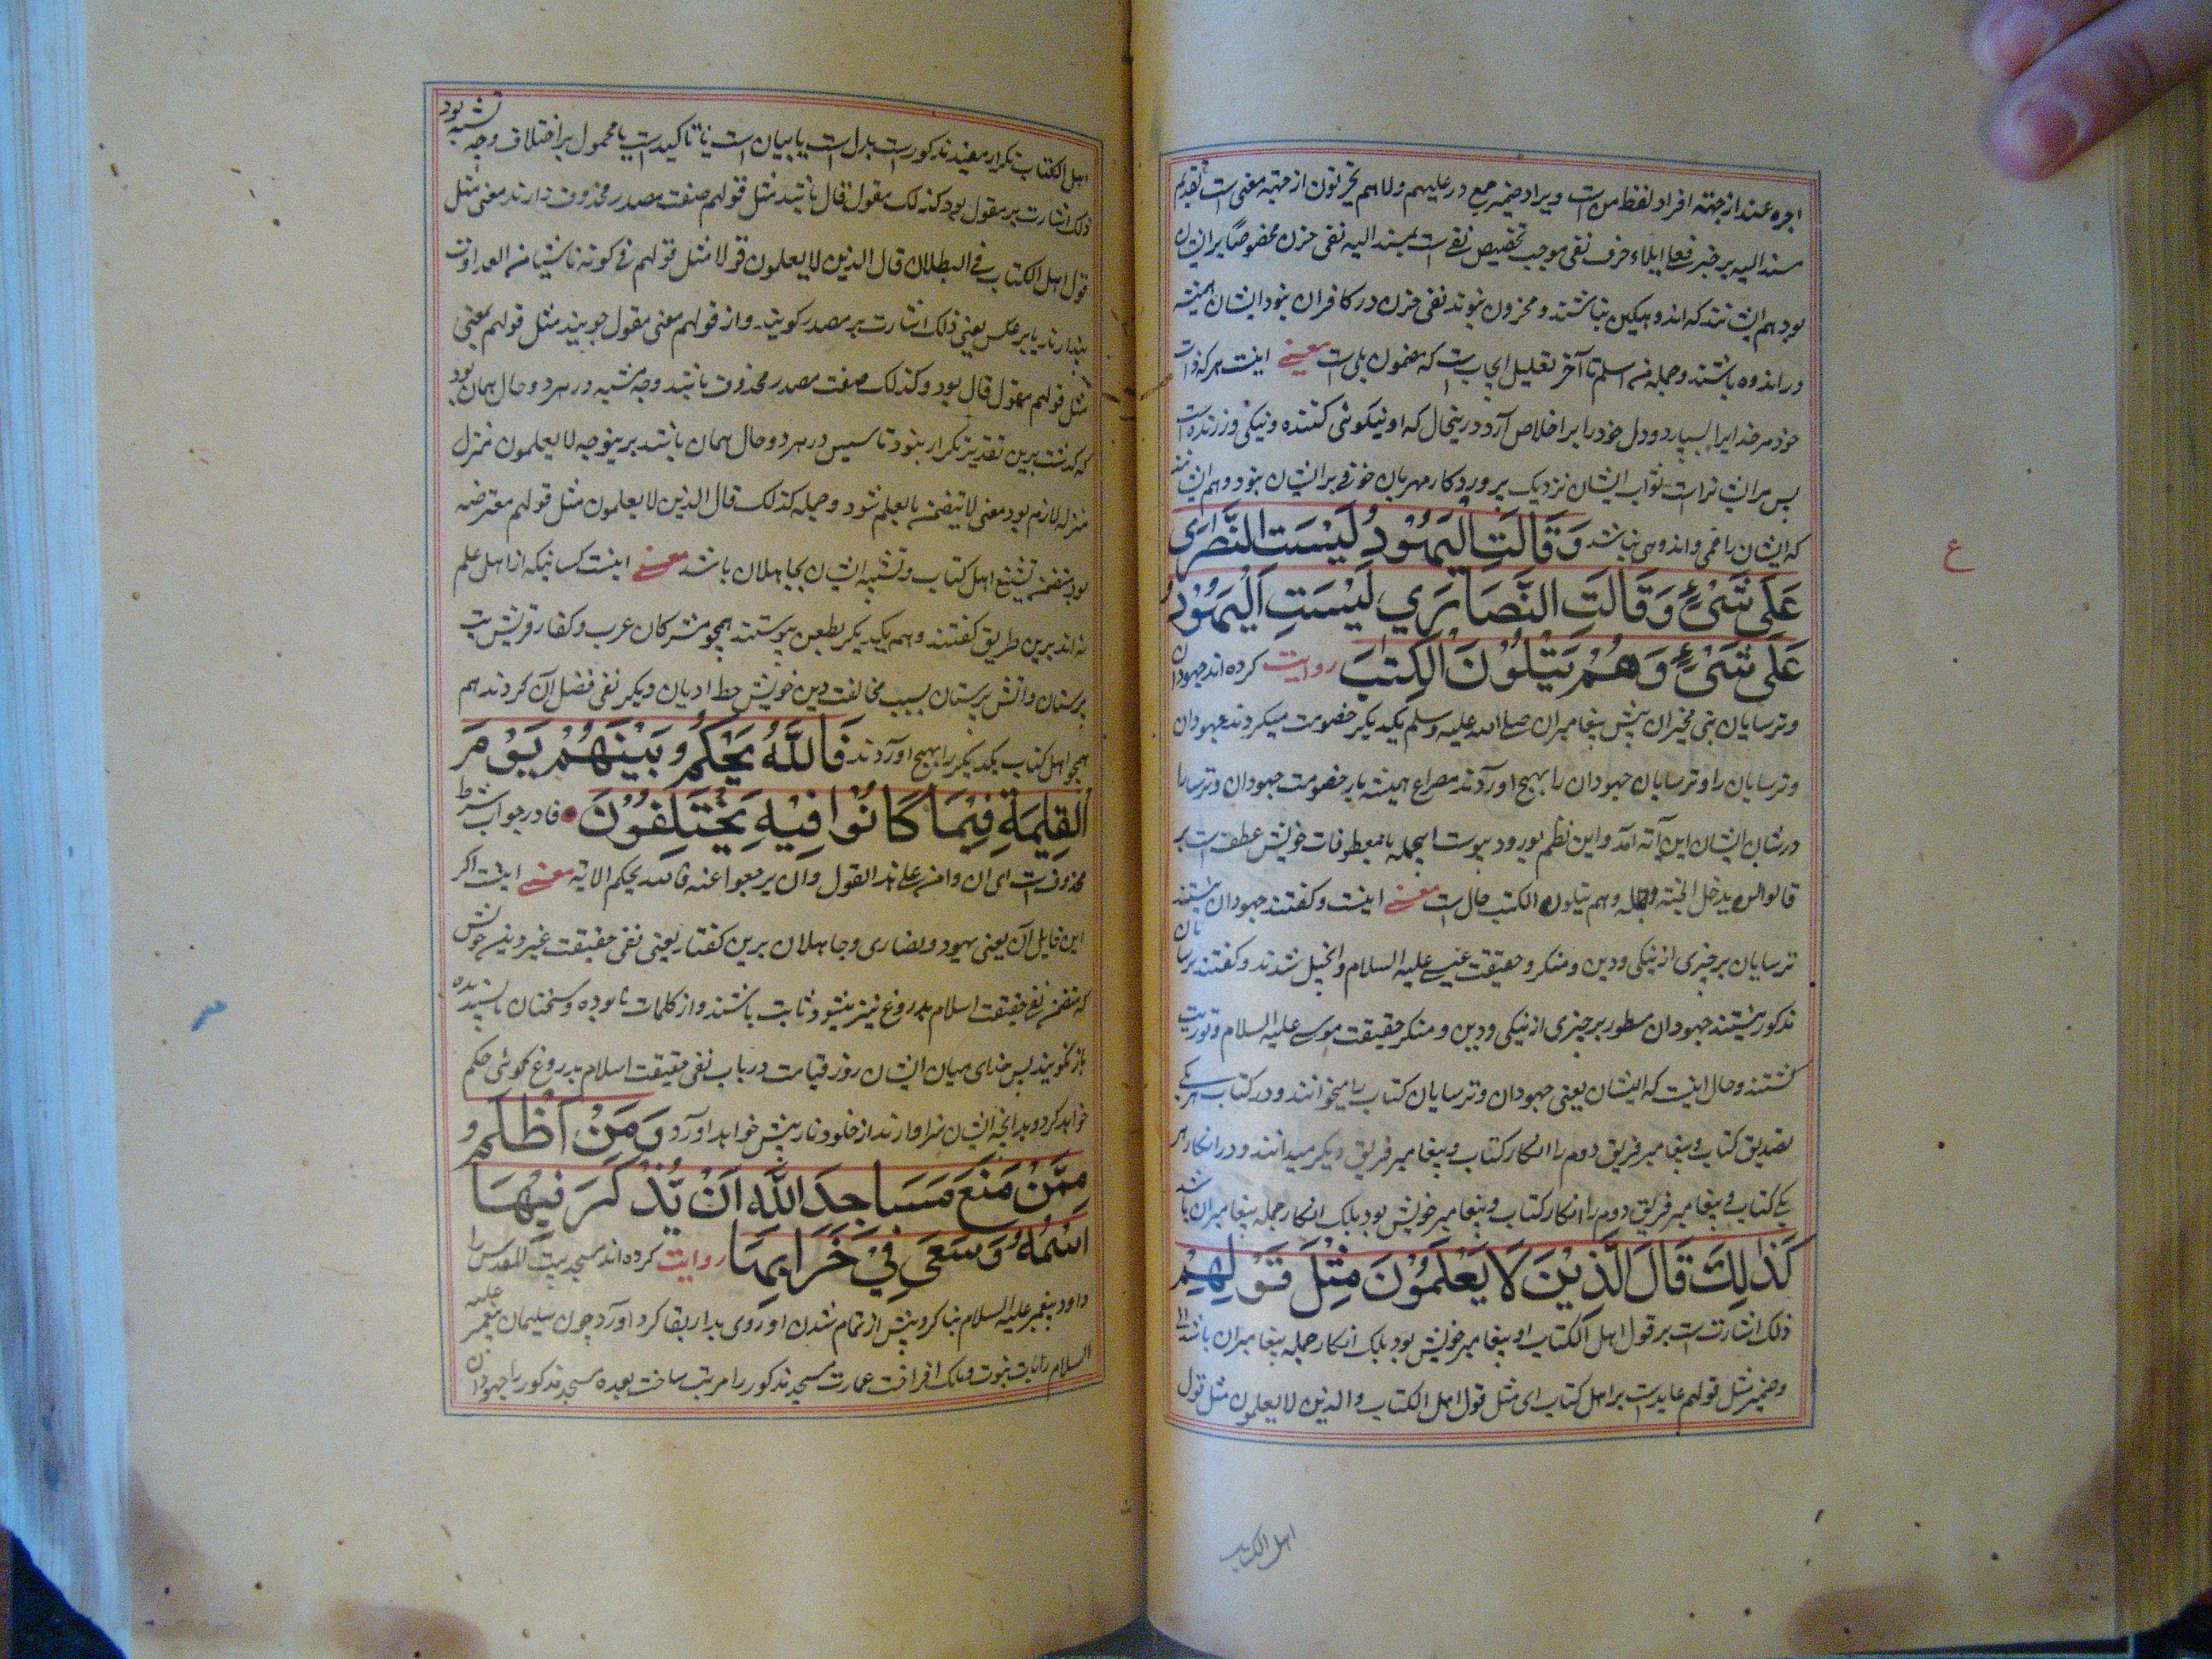 اجره عند از جهته افراد لفظ من است و ایراد ضمیر جمع در علیهم ولا هم یحزنون از جهته معنی است تقدیم
مسند الیه بر خبر فعلی ایلاء حرف نفی موجب تخصیص نفی است بمسند الیه نفی حزن مخصوصاً برایشان
بود هم ایشانند که اندوهیکین نباشند و محزون نبوند نفی حزن در کافران نبود ایشان همیشه
در اندوه باشند و جمله من اسلم تا آخر تعلیل ایجاب است که مضمون بلی است معنی اینست هر که ذات
خود مر خدایرا بسپارد و دل خود را بر اخلاص آرد در ینحال که او نیکوئی کننده و نیکی ورزنده است
پس مرایشانراست ثواب ایشان نزدیک پروردکار مهربان خوفی برایشان نبود و هم ایشانند
که ایشان را غمی و اندوهی نباشد وَقَالَتِ الْيَهُوْدُ لَيْسَتِ النَّصٰرَى
عَلَى شَىْءٍ وَقَالَتِ النَّصَارَي لَيْسَتِ الْيَهُوْدُ
عَلَى شَىْءٍ وَهُمْ يَتْلُوْنَ الْكِتٰبَ روایت کرده اند جهودان
و ترسایان بنی مخیران پیش پیغامبران صلی الله علیه وسلم یکدیکر خصومت میکردند جهودان
و ترسایان را و ترسایان جهودان را بهیچ اوردند مصراع همیشه باد خصومت جهودان و ترسا را
درشان ایشان این آیة آمد و این نظم بورود پیوست اینجمله با معطوفات خویش عطف است بر
قالوا لن یدخل الجنة وجمله وهم یتلون الکتب حال است معنی اینست و کفتند جهودان نیستند
ترسایان بر چیزی از نیکی و دین و منکر و حقیقت عیسی علیه السلام و انجیل شدند و کفتند ترسایان
مذکور نیستند جهودان مسطور بر چیزی از نیکی و دین و منکر حقیقت موسی علیه السلام و توریت
کشتند و حال اینست که ایشان یعنی جهودان و ترسایان کتاب را میخوانند و در کتاب هر یکی
تصدیق کتاب و پیغامبر فریق دوم را انکار کتاب و پیغامبر فریق دیکر میدانند و در انکار هر
یکی کتاب و پیغامبر فریق دوم را انکار کتاب و پیغامبر خویش بود بلک انکار جمله پیغامبران باشد
كَذٰلِكَ قَالَ الَّذِيْنَ لَا يَعْلَمُوْنَ مِثْلَ قَوْلِهِمْ
ذلک اشارت است بر قول اهل الکتاب او پیغامبر خویش بود بلک انکار جمله پیغامبران باشد
وضمیر مثل قولهم عاید است بر اهل کتاب ای مثل قول اهل الکتاب والذین لا یعلمون مثل قول
اهل الکتاب
ع
اهل الکتاب تکرار معنید مذکور است بدل است یا بیان است یا تاکید است یا محمول بر اختلاف وجه تشبیه بود
ذلک اشارت بر مقول بود کذلک مقول قال باشد مثل قولهم صفت مصدر محذوف دارند معنی مثل
قول اهل الکتاب فی البطلان قال الذین لا یعلمون قولا مثل قولهم فی کونه ناشیا من العداوت
پندارند یا بر عکس یعنی ذلک اشارت بر مصدر کویند و از قولهم معنی مقول جویند مثل قولهم معنی
مثل قولهم مقول قال بود و کذلک صفت مصدر محذوف باشد وجه شبه در هر دو حال همان بود
که کذشت برین تقدیر تکرار نبود تاسیس در هر دو حال همان باشد برینوجه لا یعلمون منزل
منزله لازم بود معنی لا یتصف بالعلم شود و جمله کذلک قال الذین لا یعلمون مثل قولهم معترضه
بود متضمن تشنیع اهل کتاب و تشبیه ایشان بجاهلان باشد معنی اینست کسانیکه از اهل علم
نه اند برین طریق کفتند و هم یکدیکر بطعن پیوستند همچو مشرکان عرب و کفار قریش بت
پرستان و اتش پرستان بسبب مخالفت دین خویش حط ادیان دیکر نفی فضل آن کردند هم
همچو اهل کتاب یکدیکر را بهیچ اوردند فَاللّٰهُ يَحْكُمُ بَيْنَهُمْ يَوْمَ
الْقِيٰمَةِ فِيْمَا كَانُوْا فِيْهِ يَخْتَلِفُوْنَ فا در جواب شرط
محذوف است ای ان دامت علی هذ القول وان یرجعوا عنه فالله یحکم الایة معنی اینست اکر
این قایل آن یعنی یهود و نصاری و جاهلان برین کفتار یعنی نفی حقیقت غیر دین خویش
که متضمن نفی حقیقت اسلام بدروغ نیز میشود ثابت باشند و از کلمات نابوده و سخنان ناپسندیده
باز نکویند پس خدای میان ایشان روز قیامت در باب نفی حقیقت اسلام بدروغ کوئی حکم
خواهد کرد و بدانچه ایشان سزاوارند از خلود نار پیش خواهد آورد وَمَنْ اَظْلَمُ
مِمَّنْ مَنَعَ مَسَاجِدَ اللّٰهِ اَنْ يُّذْكَرَ فِيْهَا
اسْمُهُ وَسَعٰى فِيْ خَرَابِهَا روایت کرده اند مسجد بیت المقدس را
داود پیغمبر علیه السلام بنا کرد پیش از تمام شدن او روی بدار بقا کرد اورد چون سلیمان پیغمبر علیه
السلام رایات نبوت و ملک افراخت عمارت مسجد مذکور را مرتب ساخت بعده مسجد مذکور را جهودان